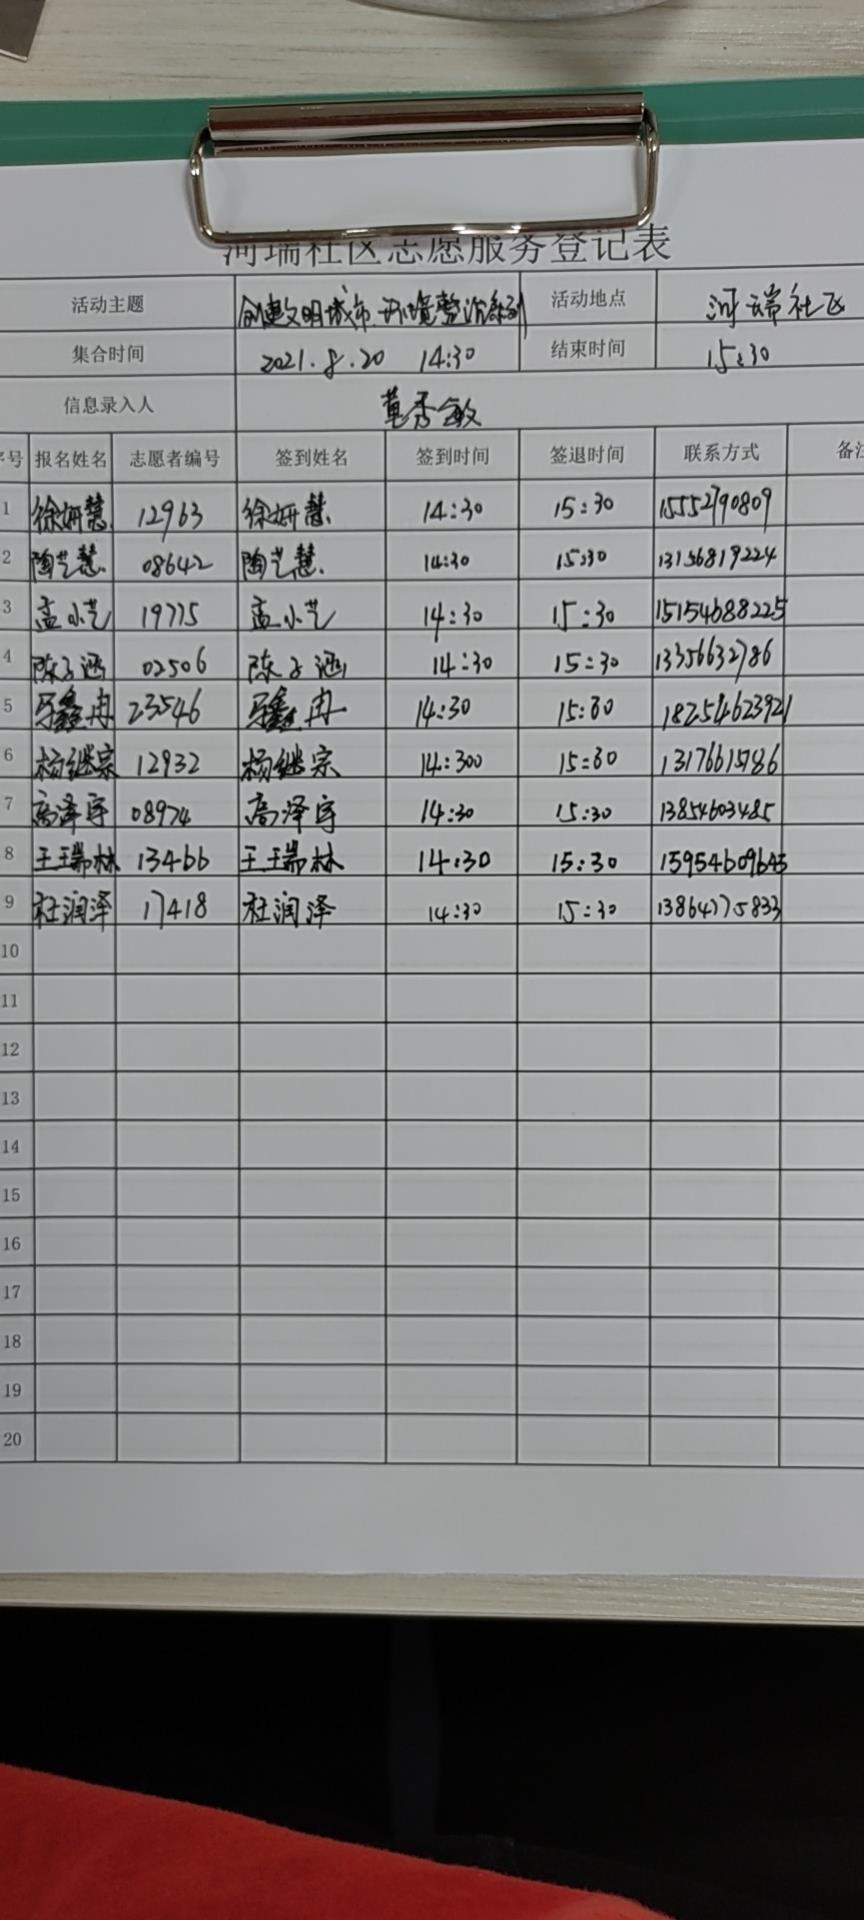 河瑞社区志愿服务登记表
活动主题 创建文明城市.环境整治系列 活动地点 河瑞社区
集合时间 2021.8.20 14:30 结束时间 15:30
信息录入人 秀敏
序号 报名姓名 志愿者编号 签到姓名 签到时间 签退时间 联系方式 备注
1 徐妍慧 12963 徐妍慧 14:30 15:30 15552790809
2 陶艺慧 08642 陶艺慧 14:30 15:30 13156819224
3 孟小艺 19775 孟小艺 14:30 15:30 15154688225
4 陈子涵 02506 陈子涵 14:30 15:30 13356632786
5 鑫冉 23546 鑫冉 14:30 15:30 18254623921
6 杨继宗 12932 杨继宗 14:300 15:30
7 高泽宇 08974 高泽宇 14:30 15:30 13854603485
8 王瑞林 13466 王瑞林 14:30 15:30 15954609645
9 杜润泽 17418 杜润泽 14:30 15:30 13864775833
10
11
12
13
14
15
16
17
18
19
20